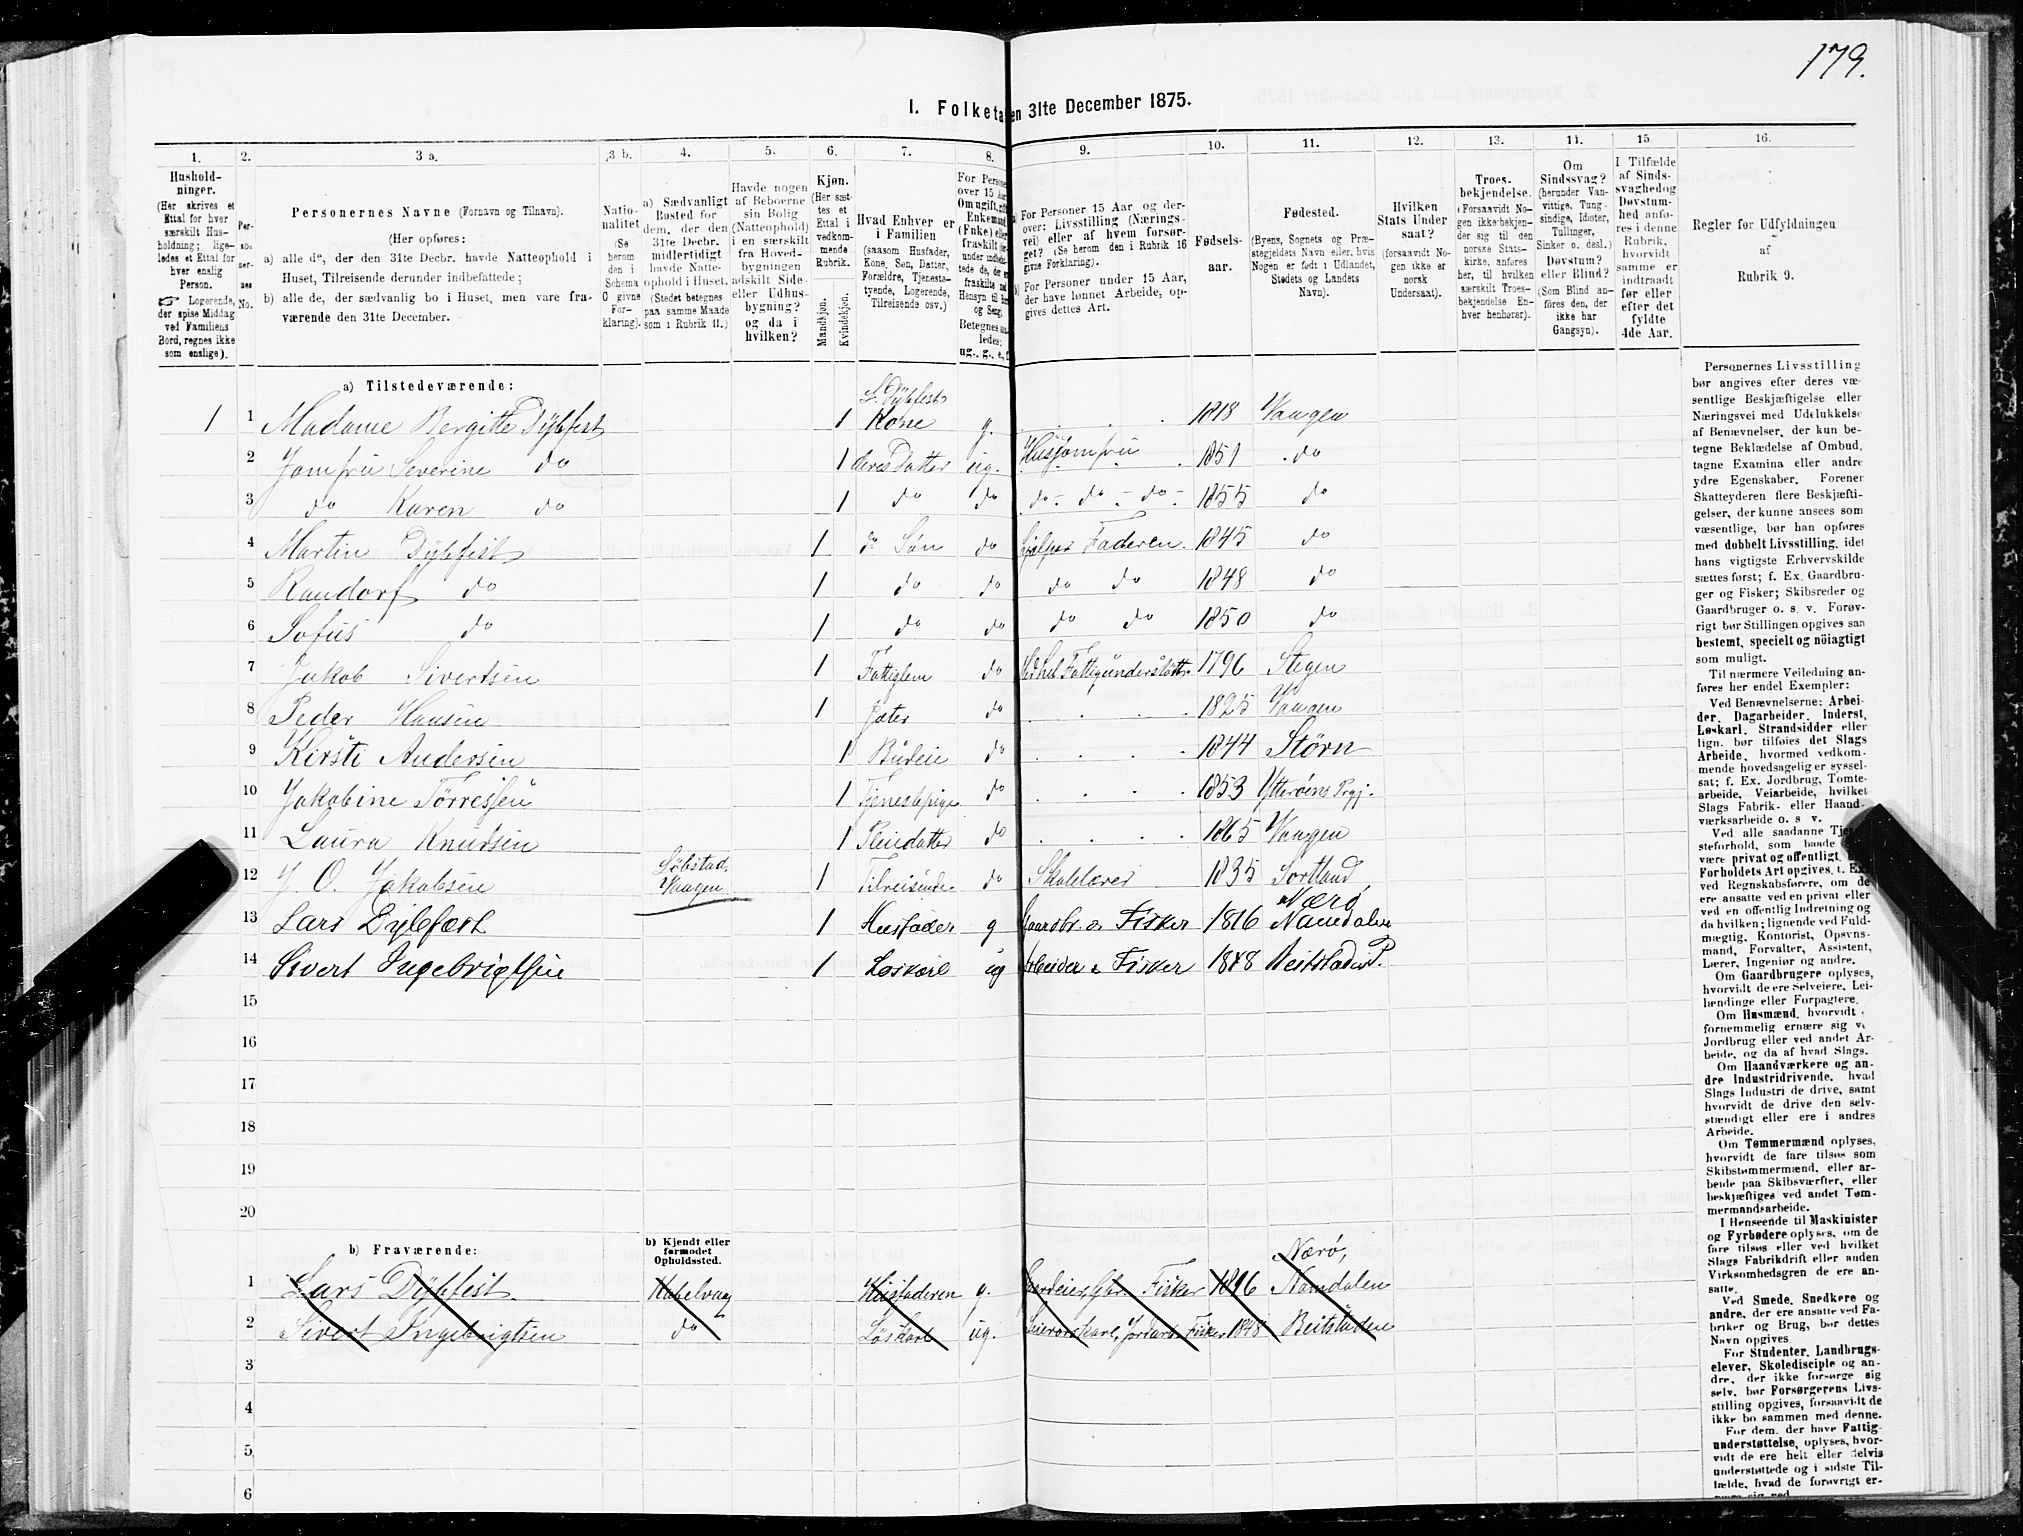 179.
I. Folketa en 31te December 1875.
1. 2. 3 a. 3 b. 4. 5. 6. 7. 8. 9. 10. 11. 12. 13. 14. 15 16.
Hushold-
ninger.
(Her skrives et
Ettal for hver
særskilt Hus-
holdning; lige-
ledes et Ettal for
hver enslig
Person.
☞ Logerende,
der spise Middag
ved Familiens
Bord, regnes ikke
som enslige).
Per-
so-
ner-
ses
No.
Personernes Navne (Fornavn og Tilnavn).
(Her opføres:
a) alle de, der den 31te Decbr. havde Natteophold i
Huset, Tilreisende derunder indbefattede;
b) alle de, der sædvanlig bo i Huset, men vare fra-
værende den 31te December.
Natio-
nalitet
(Se
herom
den i
Schema
O givne
For-
klaring).
a) Sædvanligt
Bosted for
dem, der den
31te Decbr.
midlertidigt
havde Natte-
ophold i Huset.
(Stedet betegnes
paa samme Maade
som i Rubrik 11.)
Havde nogen
af Beboerne
sin Bolig
(Natteophold)
i en særskilt
fra Hoved-
bygningen
adskilt Side-
eller Udhus-
bygning?
og da i
hvilken?
Kjøn.
(Her sæt-
tes et
Ettal i
vedkom-
mende
Rubrik.
Mandkjøn.
Kvindekjøn.
Hvad Enhver er
i Familien
(saasom Husfader,
Kone, Søn, Datter,
Forældre, Tjeneste-
tyende, Logerende,
Tilreisende osv.)
For Persone
over 15 Aar
Om ugift, gift
Enkemand
(Enke) elle
fraskilt
Hensyn til Bor
og Seng.
Betegnes saa
ledes:
ug., g., e., f.
a) For Personer 15 Aar og der-
over: Livsstilling (Nærings-
vei) eller af hvem forsør-
get? (Se herom den i Rubrik 16
givne Forklaring).
b) For Personer under 15 Aar,
der have lønnet Arbeide, op-
gives dettes Art.
Fødsels-
aar.
Fødested.
(Byens, Sognets og Præ-
stegjeldets Navn eller, hvis
Nogen er født i Udlandet,
Stedets og Landets
Navn).
Hvilken
Stats Under
saat?
(forsaavidt No-
gen ikke er
norsk
Undersaat).
Troes-
bekjendelse.
(Forsaavidt No-
gen ikke bekjen-
der sig til den
norske Stats-
kirke, anføres
her, til hvilken
særskilt Troes-
bekjendelse En-
hver henhører).
Om
Sindssvag?
(herunder Van-
vittige, Tung-
sindige, Idioter,
Tullinger,
Sinker o. desl.)
Døvstum?
eller Blind?
(Som Blind an-
føres den, der
ikke har
Gangsyn).
I Tilfælde
af Sinds-
svaghed og
Døvstum-
hed anfø-
res i denne
Rubrik,
hvorvidt
samme er
indtraadt
før eller
efter det
fyldte
4de Aar.
Regler for Udfyldningen
af
Rubrik 9.
a) Tilstedeværende:
1 1 Madame Bergitte Dÿbfest 1 L. Dÿbfests Kone g. 1818 Vaagen
2 Jomfru Severine do 1 deres Datter ug. Husjomfru 1851 do
3 do Karen do 1 do do do - do - do - 1855 do
4 Martin Dÿbfest 1 do Søn do hjelper Faderen. 1845 do
5 Raudorf do 1 do do do do 1848 do
6 Sofus do 1 do do do do 1850 do
7 Jakob Sivertsen 1 Fattiglem do Fattigunderstøtt. 1796 Stegen
8 Peder Hansen 1 Jæter do 1825 Vaagen
9 Kirsti Andersen 1 Budeie do 1844 Störn
10 Jakobine Torressen 1 Tjenestepige do 1853 Ytterøens Prgj.
11 Laura Knudsen 1 Pleiedatter do 1865 Vaagen
12 J. O. Jakobsen Søbstad, Vaagen 1 Tilreisende do Skolelærer 1835 Sortland
13 Lars Dylefest 1 Husfader g Gaardbr. o. Fisker 1816 Nærø Namdalen
14 Sivert Ingebrigtsen 1 Løskarl ug Arbeider & Fisker 1848 Beitstaden P.
15
16
17
18
19
20
b) Fraværende:
b) Kjendt eller
formodet
Opholdssted.
1 Lars Dÿbfest Husfaderen g. Fisker 1816 Nærø, Namdalen
2 Sivert Ingebrigtsen do Løskarl ug. Fisker 1848 Beitstaden
3
4
5
6
Personernes Livsstilling
bør angives efter deres væ-
sentlige Beskjæftigelse eller
Næringsvei med Udelukkelse
af Benævnelser, der kun be-
tegne Beklædelse af Ombud,
tagne Examina eller andre
ydre Egenskaber. Forener
Skatteyderen flere Beskjæfti-
gelser, der kunne ansees som
væsentlige, bør han opføres
med dobbelt Livsstilling, idet
hans vigtigste Erhvervskilde
sættes først; f. Ex. Gaardbru-
ger og Fisker; Skibsreder og
Gaardbruger o. s. v. Forøv-
rigt bør Stillingen opgives saa
bestemt, specielt og nöiagtigt
som muligt.
Til nærmere Veiledning an-
føres her endel Exempler:
Ved Benævnelserne: Arbei-
der, Dagarbeider, Inderst,
Løskarl, Strandsidder eller
lign. bør tilføies det Slags
Arbeide, hvormed vedkom-
mende hovedsagelig er syssel-
sat; f. Ex. Jordbrug, Tomte-
arbeide, Veiarbeide, hvilket
Slags Fabrik- eller Haand-
værksarbeide o. s v.
Ved alle saadanne Tje
steforhold, som baade
være privat og offentligt,
Forholdets Art opgives, t. Ex
ved Regnskabsførere, om de
ere ansatte ved en privat eller
ved en offentlig Indretning og
da hvilken; lignende ved Fuld-
mægtig, Kontorist, Opsyns-
mand, Forvalter, Assistent,
Lærer, Ingeniør og andre.
Om Gaardbrugere oplyses,
hvorvidt de ere Selveiere, Lei-
lændinge eller Forpagtere.
Om Husmænd, hvorvidt
fornemmelig ernære sig v
Jordbrug eller ved andet Ar-
beide, og da af hvad Slags.
Om Haandværkere og an-
dre Industridrivende, hvad
Slags Industri de drive, samt
hvorvidt de drive den selv-
stændigt eller ere i andres
Arbeide.
Om Tømmermænd oplyses,
hvorvidt de fare tilsøs som
Skibstømmermænd, eller ar-
beide paa Skibsværfter, eller
beskjæftiges ved andet Tøm-
mermandsarbeide.
I Henseende til Maskinister
og Fyrbødere oplyses, om de
fare tilsøs eller ved hvilket
Slags Fabrikdrift eller anden
Virksomhedsgren de ere an-
satte.
Ved Smede, Snedkere og
andre, der ere ansatte ved Fa-
briker og Brug, bør dettes
Navn opgives
For Studenter, Landbrugs-
elever, Skoledisciple og an-
dre, der ikke forsørge sig
selv, bør Forsørgerens Livs-
stilling opgives, forsaavidt de
ikke bo sammen med denne.
For dem, der have Fattig-
understøttelse, oplyses, hvor-
vidt de ere helt eller delvis
understøttede og i sidste Til-
fælde, hvad de forøvrigt er-
nære sig ved